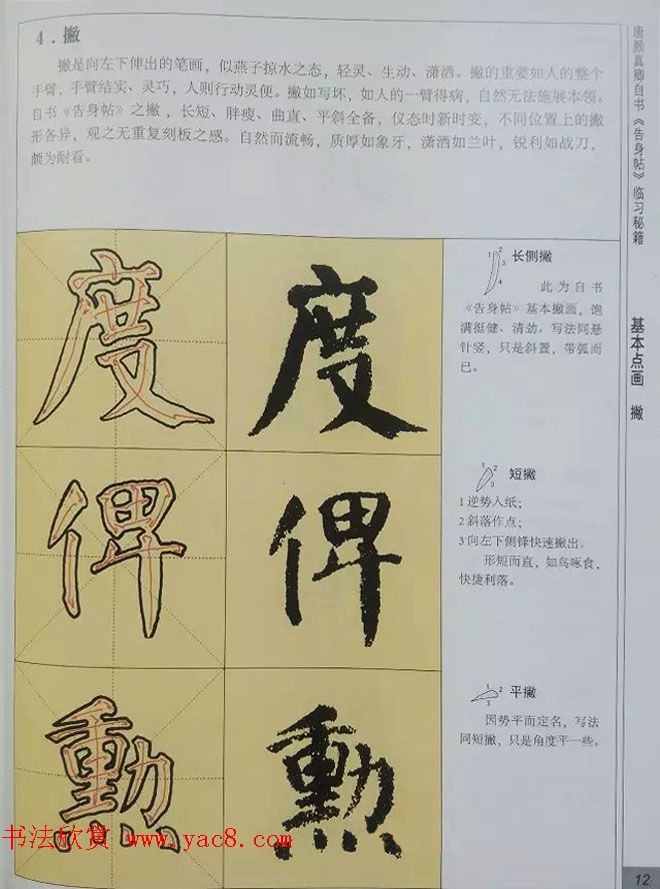 4．撇
撇是向左下伸出的笔画，似燕子掠水之态，轻灵、生动、潇洒。撇的重要如人的整个
手臂，手臂结实、灵巧，人则行动灵便。撇如写坏，如人的一臂得病，自然无法施展本领。
自书《告身帖》之撇，长短、胖瘦、曲直、平斜全备，仪态时新时变，不同位置上的撇
形各异，观之无重复刻板之感。自然而流畅，质厚如象牙，潇洒如兰叶，锐利如战刀，
颇为耐看。
度 度
1 2 3 4 长侧撇
此为自书
《告身帖》基本撇画，饱
满挺健、清劲。写法同悬
针竖，只是斜置，带弧而
已。
俾 俾
1 2 3 短撇
1 逆势入纸；
2 斜落作点；
3 向左下侧锋快速撇出。
形短而直，如鸟啄食，
快捷利落。
勲 勲
1 2 3 平撇
因势平而定名，写法
同短撇，只是角度平一些。
唐颜真卿自书《告身帖》临习秘籍
基本点画 撇
12
书法欣赏 www.yac8.com